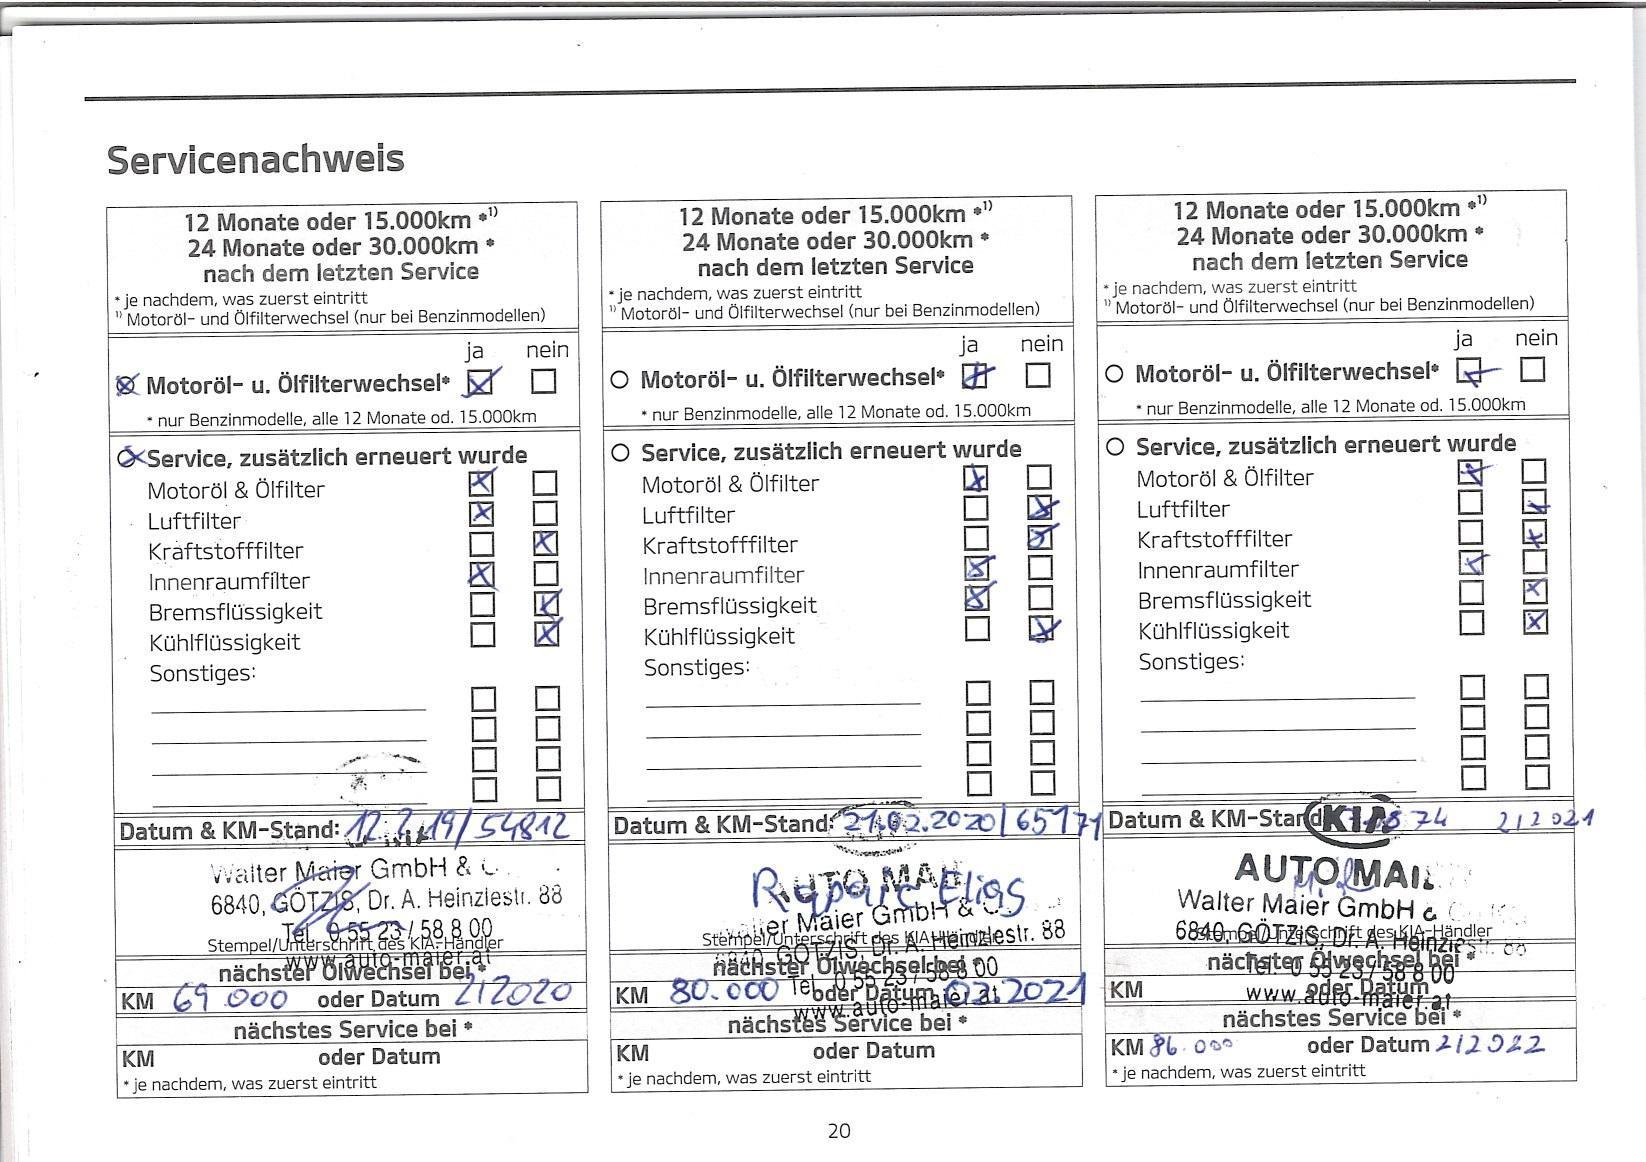 Servicenachweis
12 Monate oder 15.000km *1)
24 Monate oder 30.000km *
nach dem letzten Service
* je nachdem, was zuerst eintritt
1) Motoröl- und Ölfilterwechsel (nur bei Benzinmodellen)
ja nein
Motoröl- u. Ölfilterwechsel*
* nur Benzinmodelle, alle 12 Monate od. 15.000km
Service, zusätzlich erneuert wurde
Motoröl & Ölfilter
Luftfilter
Kraftstofffilter
Innenraumfilter
Bremsflüssigkeit
Kühlflüssigkeit
Sonstiges:
Datum & KM-Stand: 12.2.19/54812
Walter Maier GmbH &
6840, GÖTZIS, Dr. A. Heinzlestr. 88
Tel. 0 55 23 / 58 8 00
Stempel/Unterschrift des KIA-Händler
www.auto-maier.at
nächster Ölwechsel bei *
KM 69.000 oder Datum 2/2020
nächstes Service bei *
KM oder Datum
* je nachdem, was zuerst eintritt
12 Monate oder 15.000km *1)
24 Monate oder 30.000km *
nach dem letzten Service
* je nachdem, was zuerst eintritt
1) Motoröl- und Ölfilterwechsel (nur bei Benzinmodellen)
ja nein
Motoröl- u. Ölfilterwechsel*
* nur Benzinmodelle, alle 12 Monate od. 15.000km
Service, zusätzlich erneuert wurde
Motoröl & Ölfilter
Luftfilter
Kraftstofffilter
Innenraumfilter
Bremsflüssigkeit
Kühlflüssigkeit
Sonstiges:
Datum & KM-Stand: 21.02.2020/65171
AUTO
Elias
Maier GmbH &
Stempel/Unterschrift des KIA-Händler
6840, GÖTZIS, Dr. A. Heinzlestr. 88
nächster Ölwechsel bei *
Tel. 0 55 23 / 58 8 00
KM 80.000 oder Datum 02.2021
www.auto-maier.at
nächstes Service bei *
KM oder Datum
* je nachdem, was zuerst eintritt
12 Monate oder 15.000km *1)
24 Monate oder 30.000km *
nach dem letzten Service
* je nachdem, was zuerst eintritt
1) Motoröl- und Ölfilterwechsel (nur bei Benzinmodellen)
ja nein
Motoröl- u. Ölfilterwechsel*
* nur Benzinmodelle, alle 12 Monate od. 15.000km
Service, zusätzlich erneuert wurde
Motoröl & Ölfilter
Luftfilter
Kraftstofffilter
Innenraumfilter
Bremsflüssigkeit
Kühlflüssigkeit
Sonstiges:
Datum & KM-Stand 2/2021
KIA
AUTO
Walter Maier GmbH &
6840, GÖTZIS, Dr. A. Heinzlestr. 88
Stempel/Unterschrift des KIA-Händler
nächster Ölwechsel bei *
Tel. 0 55 23 / 58 8 00
KM oder Datum
www.auto-maier.at
nächstes Service bei *
KM 86.000 oder Datum 2/2022
* je nachdem, was zuerst eintritt
20